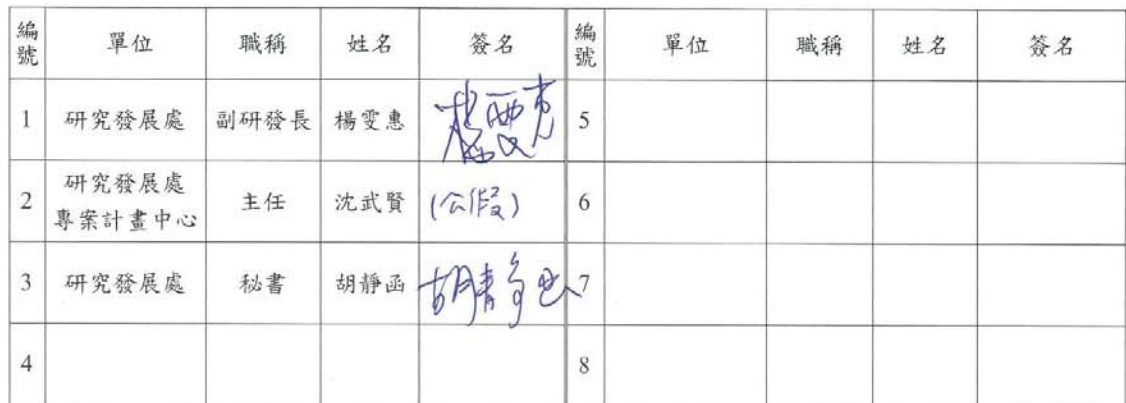 編號 單位 職稱 姓名 簽名 編號 單位 職稱 姓名 簽名
1 研究發展處 副研發長 楊雯惠 5
2 研究發展處專案計畫中心 主任 沈武賢 (公假) 6
3 研究發展處 秘書 胡靜函 胡靜函 7
4 8